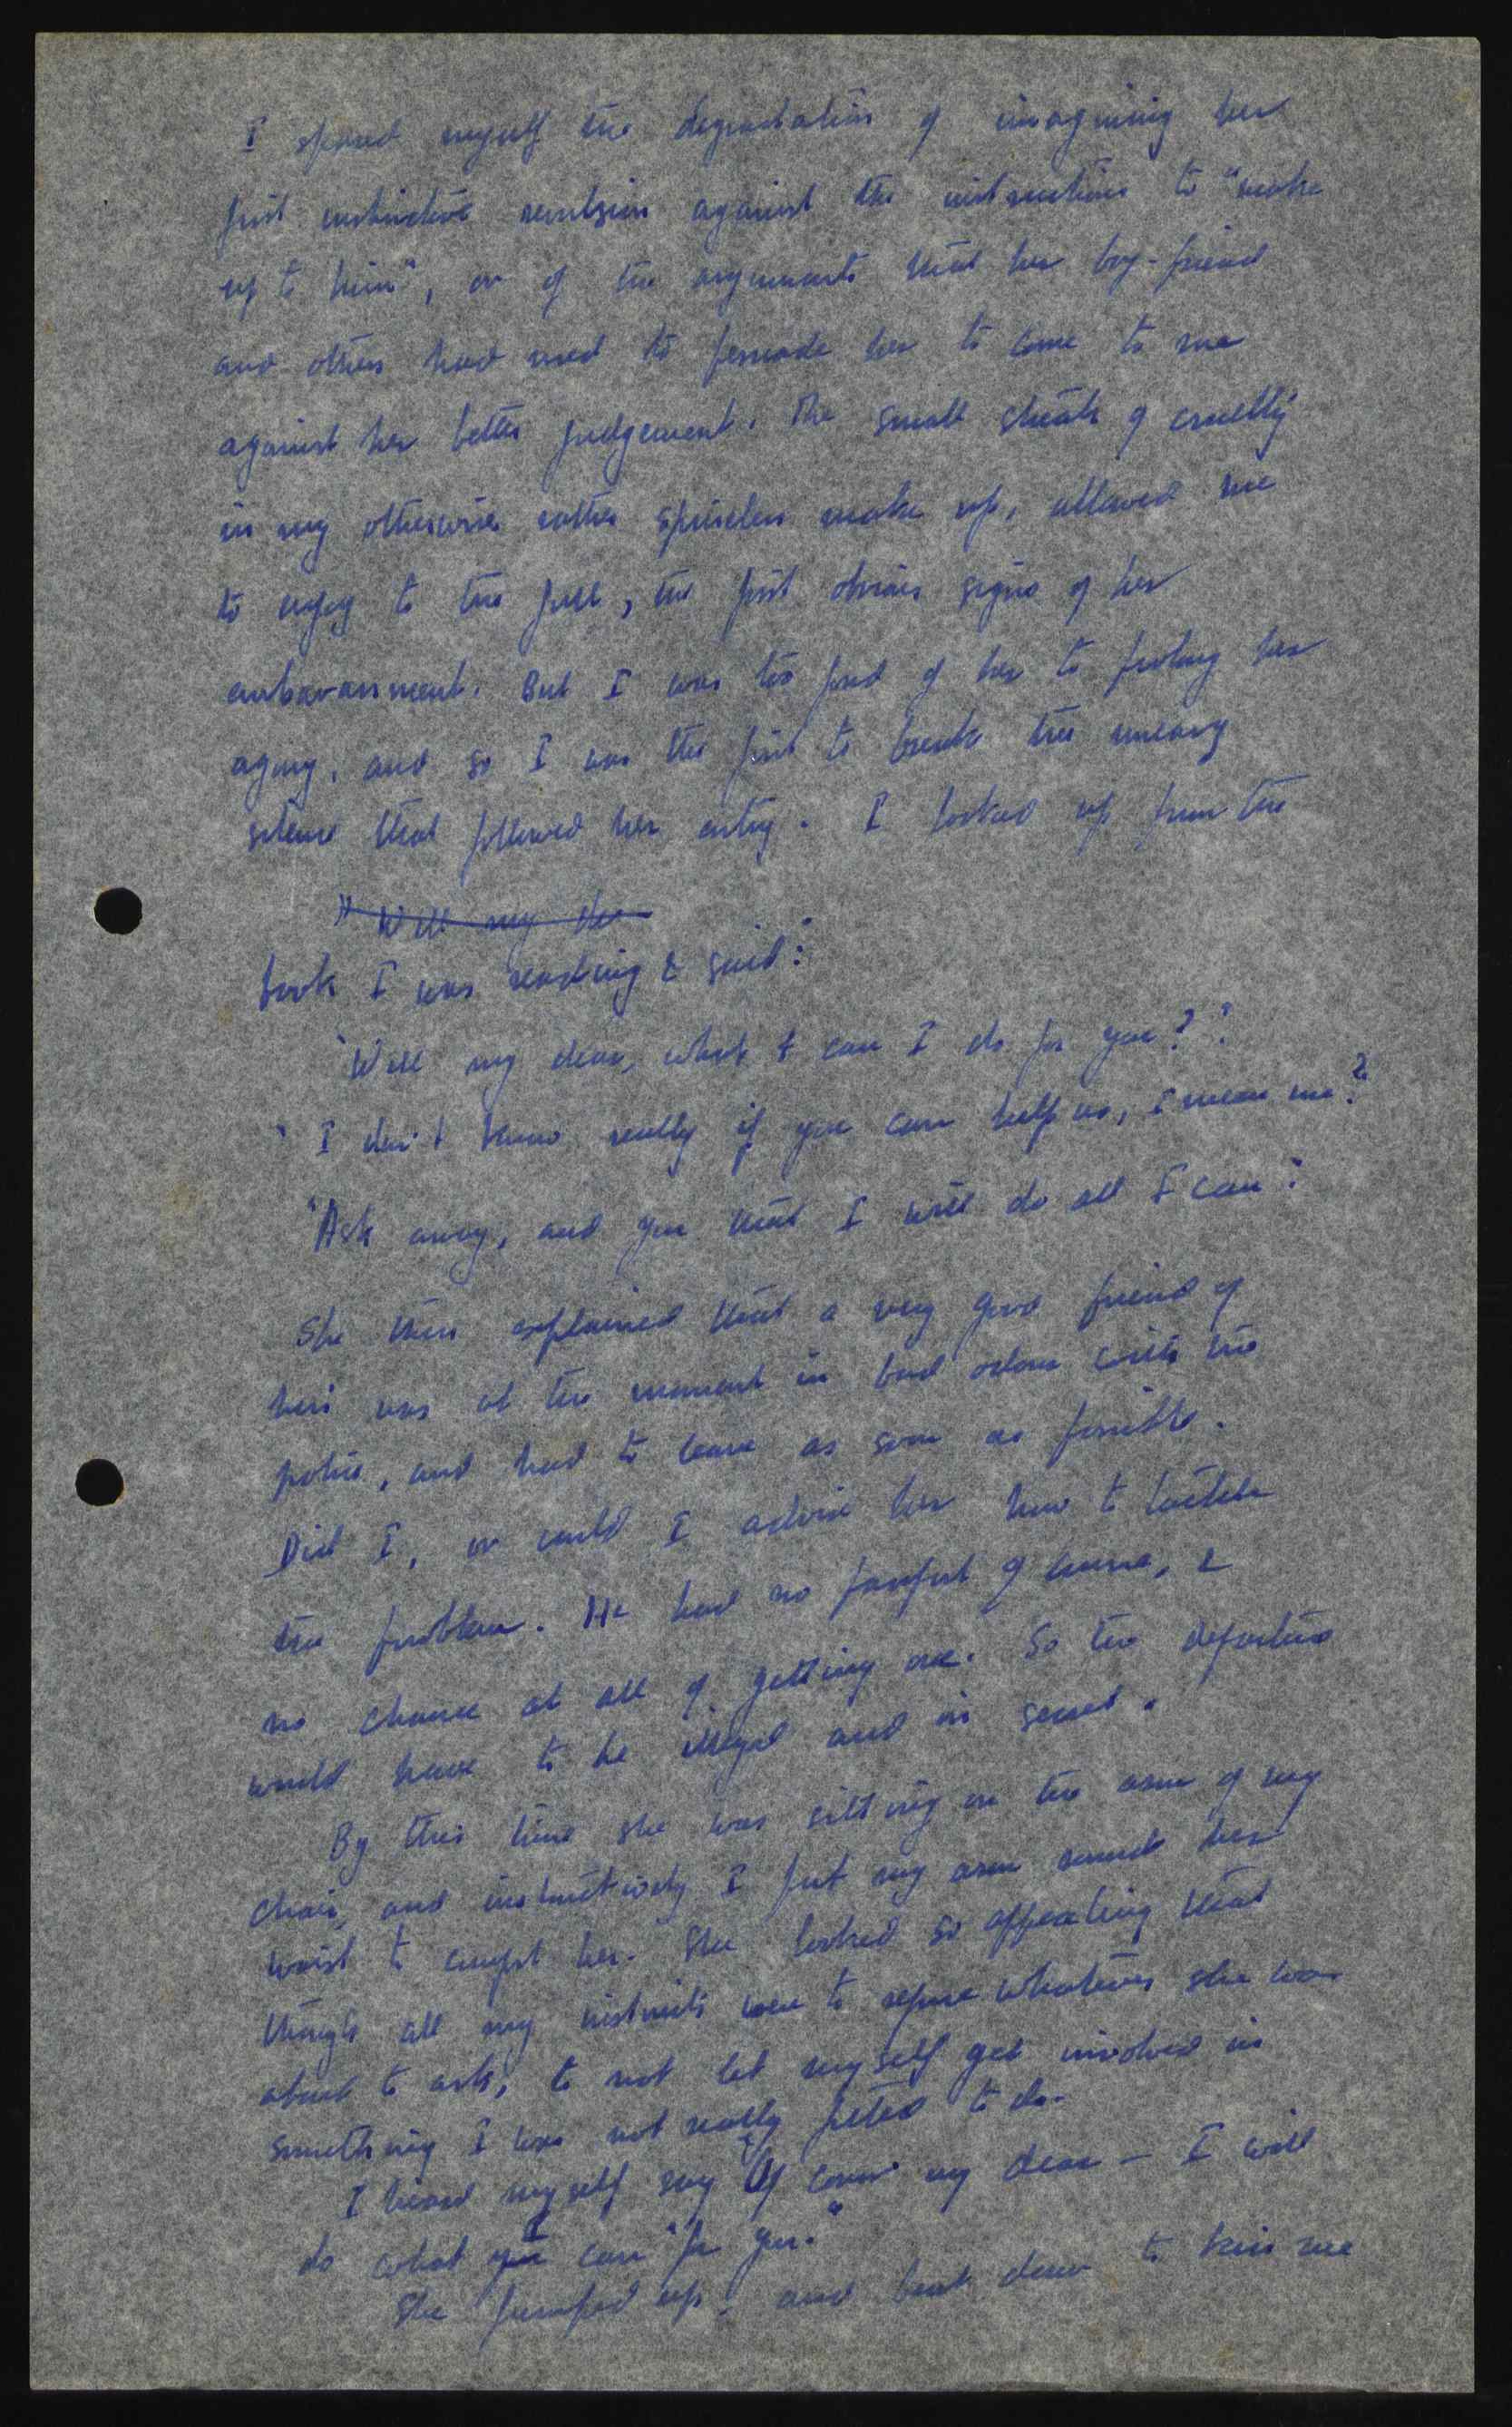 I spared myself the degradation of imagining her
first instinctive revulsion against the instructions to "make
up to him", or of the arguments that her boy-friend
and others had used to persuade her to come to me
against her better judgement. The small streak of cruelty
in my otherwise rather spineless make up, allowed me
to enjoy to the full, the first obvious signs of her
embarrassment. But I was too fond of her to prolong her
agony, and so I was the first to break the uneasy
silence that followed her entry. I looked up from the
" Well my dea
book I was reading & said:
"Well my dear, what t can I do for you?".
" I don't know really if you can help us, I mean me?"
"Ask away, and you that I will do all I can".
She then explained that a very good friend of
hers was at the moment in bad odour with the
police, and had to leave as soon as possible.
Did I, or could I advise her how to tackle
the problem. He had no passport of course, &
no chance at all of getting one. So the departure
would have to be illegal and in secret.
By this time she was sitting on the arm of my
chair, and instinctively I put my arm round her
waist to comfort her. She looked so appealing that
though all my instincts were to refuse whatever she was
about to ask, to not let myself get involved in
something I was not really fitted to do.
I heard myself say "Of course my dear – I will
do what I can for you."
She jumped up, and bent down to kiss me